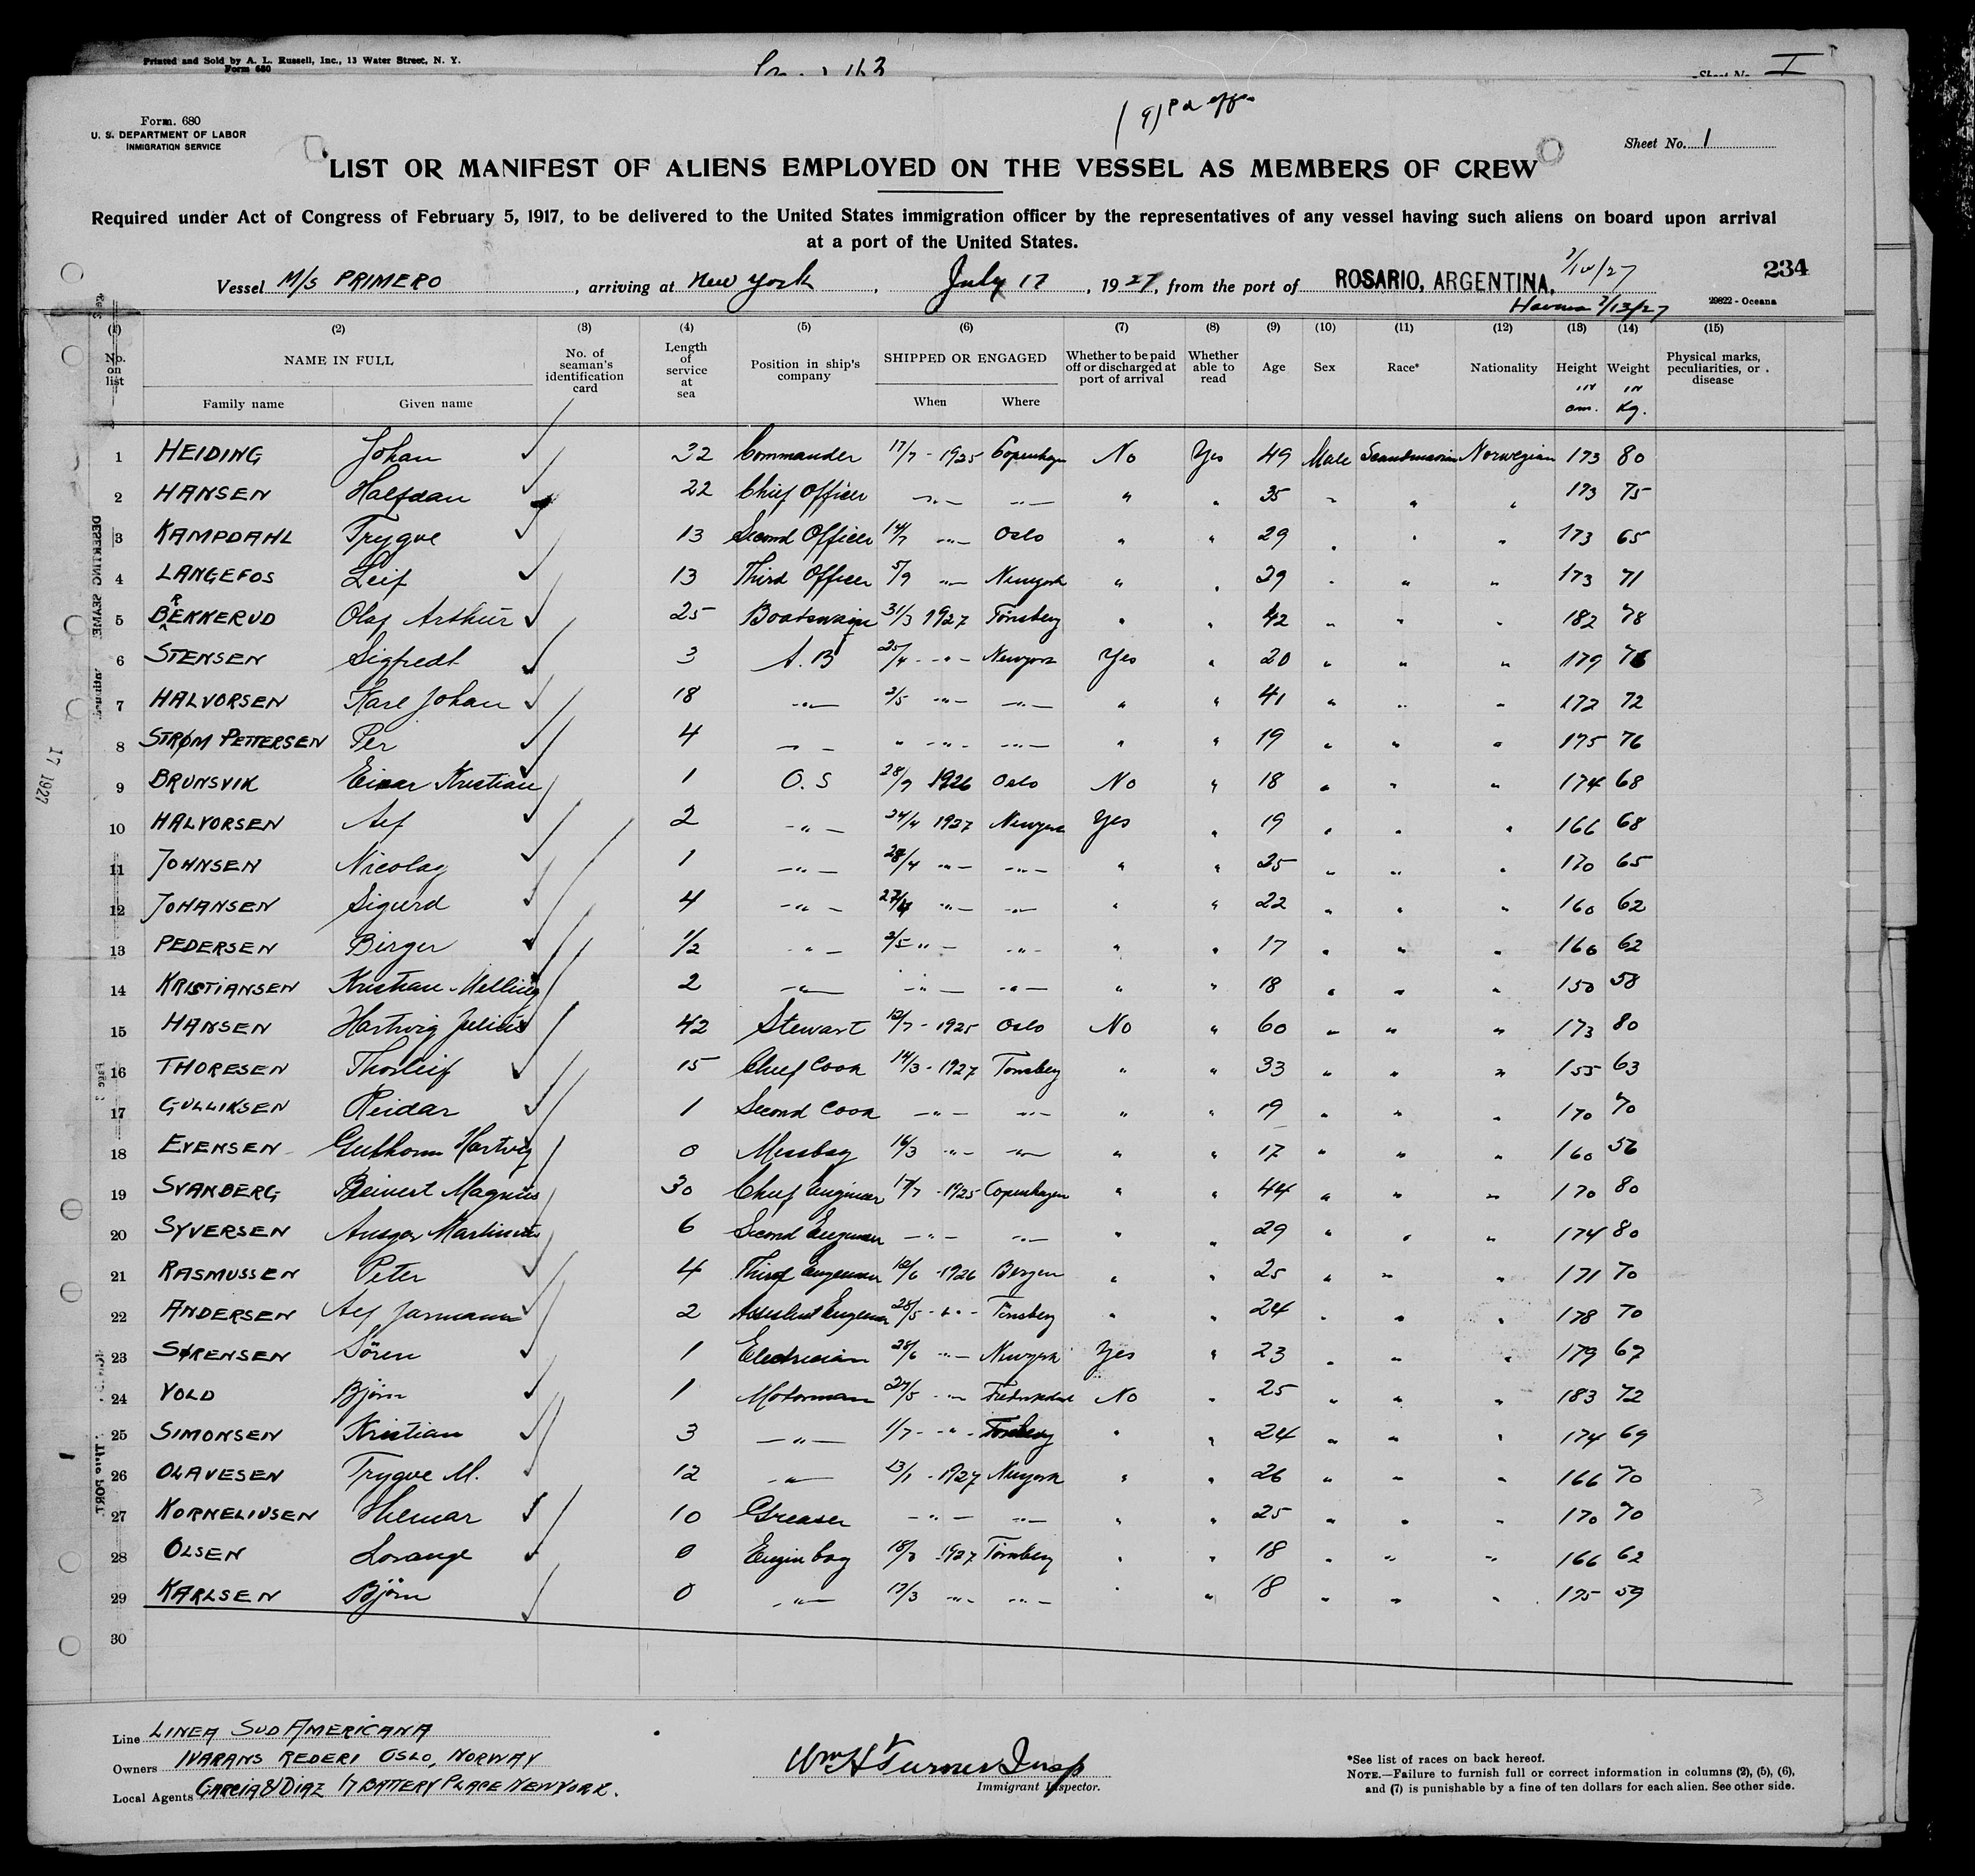 Printed and Sold by A. L. Russell, Inc., 13 Water Street, N. Y.
Form 680
Sheet No. I
Form. 680
U. S. DEPARTMENT OF LABOR
INMIGRATION SERVICE
Sheet No. 1
LIST OR MANIFEST OF ALIENS EMPLOYED ON THE VESSEL AS MEMBERS OF CREW
Required under Act of Congress of February 5, 1917, to be delivered to the United States immigration officer by the representatives of any vessel having such aliens on board upon arrival
at a port of the United States.
234
Vessel M/S PRIMERO, arriving at New York, July 17, 1927, from the port of ROSARIO, ARGENTINA,
29822 - Oceana
(1) (2) (3) (4) (5) (6) (7) (8) (9) (10) (11) (12) (13) (14) (15)
No. on list NAME IN FULL No. of seaman's identification card Length of service at sea Position in ship's company SHIPPED OR ENGAGED Whether to be paid off or discharged at port of arrival Whether able to read Age Sex Race* Nationality Height Weight Physical marks, peculiarities, or disease
Family name Given name When Where in cm. in Kg.
1 HEIDING Johan 32 Commander 17/7 - 1925 Copenhagen No Yes 49 Male Scandinavian Norwegian 173 80
2 HANSEN Halfdan 22 Chief Officer -"- -"- " " 35 " " " 173 75
3 KAMPDAHL Trygve 13 Second Officer 14/7 -"- Oslo " " 29 " " " 173 65
4 LANGEFOS Leif 13 Third Officer 5/9 -"- Newyork " " 29 " " " 173 71
5 BREKKERUD Olaf Arthur 25 Boatswain 31/3 1927 Tönsberg " " 42 " " " 182 78
6 STENSEN Sigfredt 3 A. B 25/4 -"- Newyork Yes " 20 " " " 179 76
7 HALVORSEN Karl Johan 18 -"- 2/5 -"- -"- " " 41 " " " 172 72
8 STRØM PETTERSEN Per 4 -"- " -"- -"- " " 19 " " " 175 76
9 BRUNSVIK Einar Kristian 1 O. S 28/9 1926 Oslo No " 18 " " " 174 68
10 HALVORSEN Alf 2 -"- 24/4 1927 Newyork Yes " 19 " " " 166 68
11 JOHNSEN Nicolay 1 -"- 28/4 -"- -"- " " 25 " " " 170 65
12 JOHANSEN Sigurd 4 -"- 27/4 -"- -"- " " 22 " " " 160 62
13 PEDERSEN Birger 1/2 -"- 2/5 -"- -"- " " 17 " " " 160 62
14 KRISTIANSEN Kristian Melling 2 -"- -"- -"- " " 18 " " " 150 58
15 HANSEN Hartvig Julius 42 Stewart 12/7 - 1925 Oslo No " 60 " " " 173 80
16 THORESEN Thorleif 15 Chief Cook 14/3 - 1927 Tonsberg " " 33 " " " 155 63
17 GULLIKSEN Reidar 1 Second Cook -"- -"- " " 19 " " " 170 70
18 EVENSEN Guthorm Hartvig 0 Messboy 16/3 -"- -"- " " 17 " " " 160 56
19 SVANBERG Beinert Magnus 30 Chief Engineer 17/7 - 1925 Copenhagen " " 44 " " " 170 80
20 SYVERSEN Ansgar Martinius 6 Second Engineer -"- -"- " " 29 " " " 174 80
21 RASMUSSEN Peter 4 Third Engineer 12/6 - 1926 Bergen " " 25 " " " 171 70
22 ANDERSEN Alf Jarmann 2 Assistent Engineer 28/5 -"- Tönsberg " " 24 " " " 178 70
23 SØRENSEN Sören 1 Electrician 28/6 -"- Newyork Yes " 23 " " " 179 67
24 VOLD Björn 1 Motorman 27/5 -"- No " 25 " " " 183 72
25 SIMONSEN Kristian 3 -"- 1/7 -"- Tonsberg " " 24 " " " 174 69
26 OLAVESEN Trygve M. 12 -"- 13/1 - 1927 Newyork " " 26 " " " 166 70
27 KORNELIUSEN Hilmar 10 Greaser -"- -"- " " 25 " " " 170 70
28 OLSEN Lorange 0 Engin boy 18/3 1927 Tönsberg " " 18 " " " 166 62
29 KARLSEN Björn 0 -"- 17/3 -"- -"- " " 18 " " " 175 59
30
17 1927
Line LINEA SUD AMERICANA
Owners IVARANS REDERI OSLO, NORWAY
Local Agents GARCIA & DIAZ 17 BATTERY PLACE NEW YORK.
Wm H Turner Insp
Immigrant Inspector.
*See list of races on back hereof.
NOTE.—Failure to furnish full or correct information in columns (2), (5), (6),
and (7) is punishable by a fine of ten dollars for each alien. See other side.